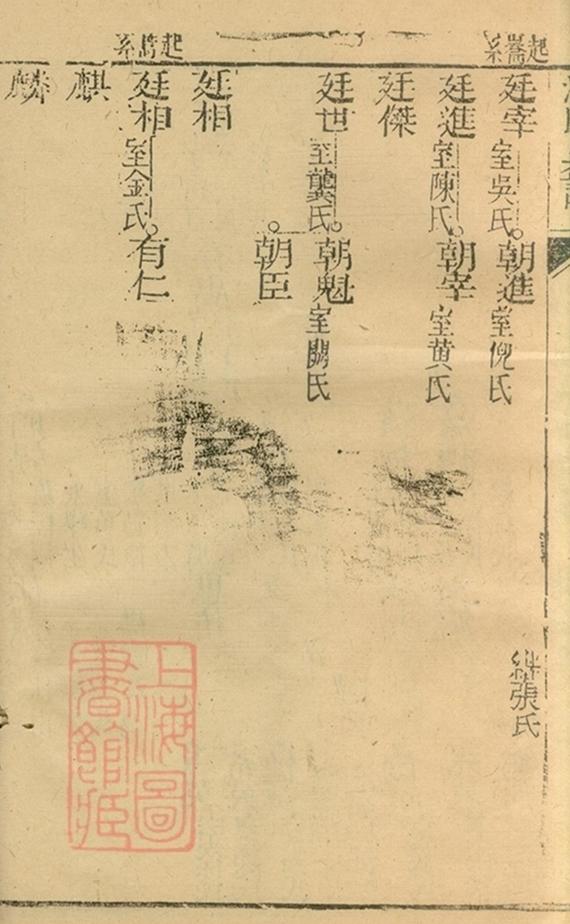 起嵩系
廷宰室吳氏 朝進室倪氏 繼張氏
廷進室陳氏 朝宰室黃氏
廷傑
廷世室龔氏 朝魁室闕氏
朝臣
廷相
起嵩系
廷相室金氏 有仁
麒
麟
上海圖
書館藏